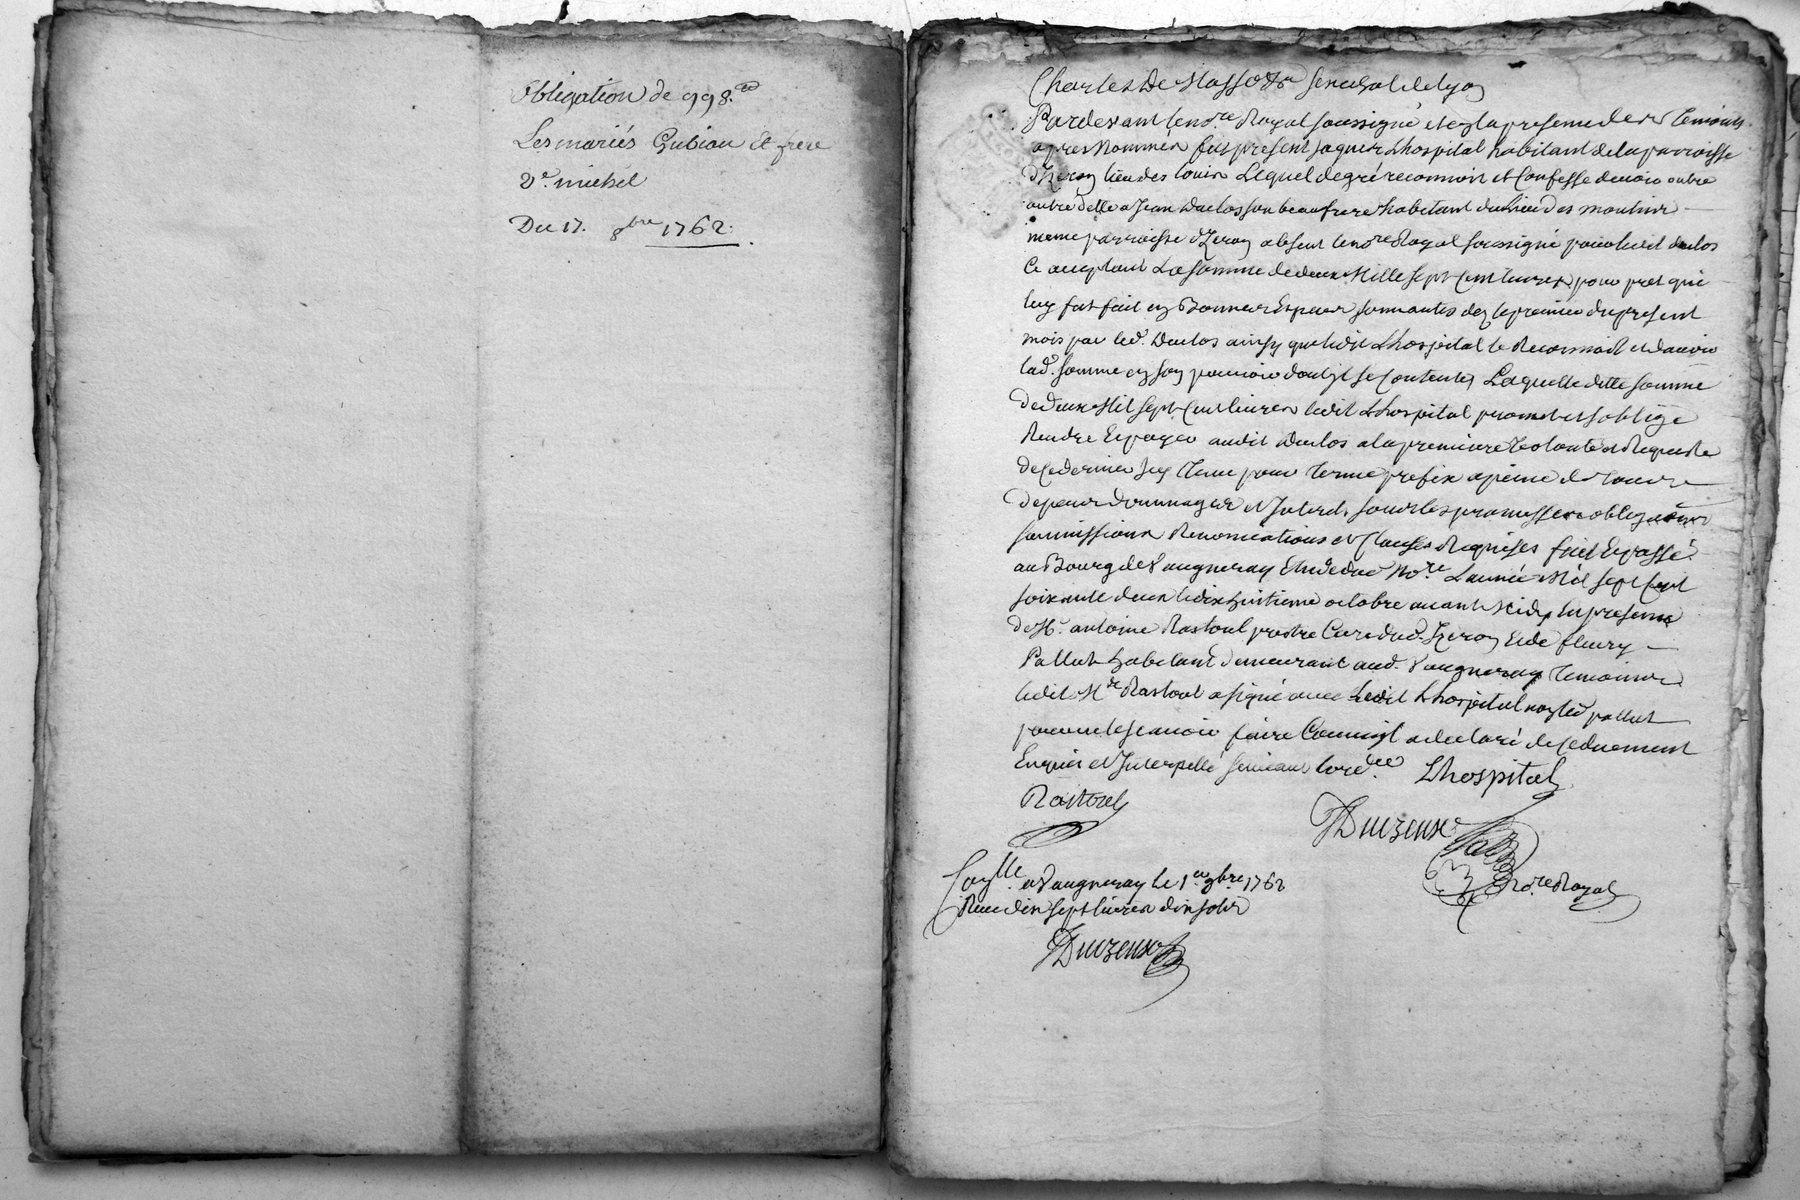 Obligation de 998.
Les mariés Gubian et frere
Ve. michel
Du 17. 8bre 1762.
Charles De Masso &a senechal de lyon
Pardevant le nore Royal soussigné et en la presence des temoins
apres Nommés fut present jaques Lhospital habitant de la parroisse
d'Izeron lieu des Lequel de gré reconnoit et Confesse devoir
a Jean Duclos son beaufrere habitant du Lieu des
meme parroisse d'Izeron absent le nore Royal soussigné pour ledit duclos
Ce acceptant La somme de deux Mille sept Cent livres pour pret que
luy fut fait en Bonnes Especes sonnantes des le premier du present
mois par led. Duclos ainsy que ledit Lhospital le Reconnoit et d'avoir
lad. somme en son pouvoir dont il se Contente, Laquelle ditte somme
de deux Mil sept Cent livres ledit Lhospital promet et s'oblige
Rendre Et payer audit Duclos a la premiere volonté et Requeste
de ce dernier pour terme prefix a peine de tous
depens dommages et Interets, sous les promesses obligations
soumissions Renonciations et Clauses Requises fait Et passé
au Bourg de Vaugneray Etude dud. Nore L'année Mil sept Cent
soixante deux le dix huitieme octobre avant Midy En presence
de Mr. antoine Rastoul prestre Curé dud. Izeron Et de fleury
Pallut habitant demeurant aud. Vaugneray temoins
ledit Mre Rastoul a signé avec ledit Lhospital non led. pallut
pour ne le sçavoir faire Comme il a declaré de ce duement
Enquis et Interpellé suivant l'ordce Lhospital
Rastoul
Duizeux
Nore Royal
Conlle a Vaugneray le 1er 9bre 1762
Receu dix sept livres dix sols
Duizeux